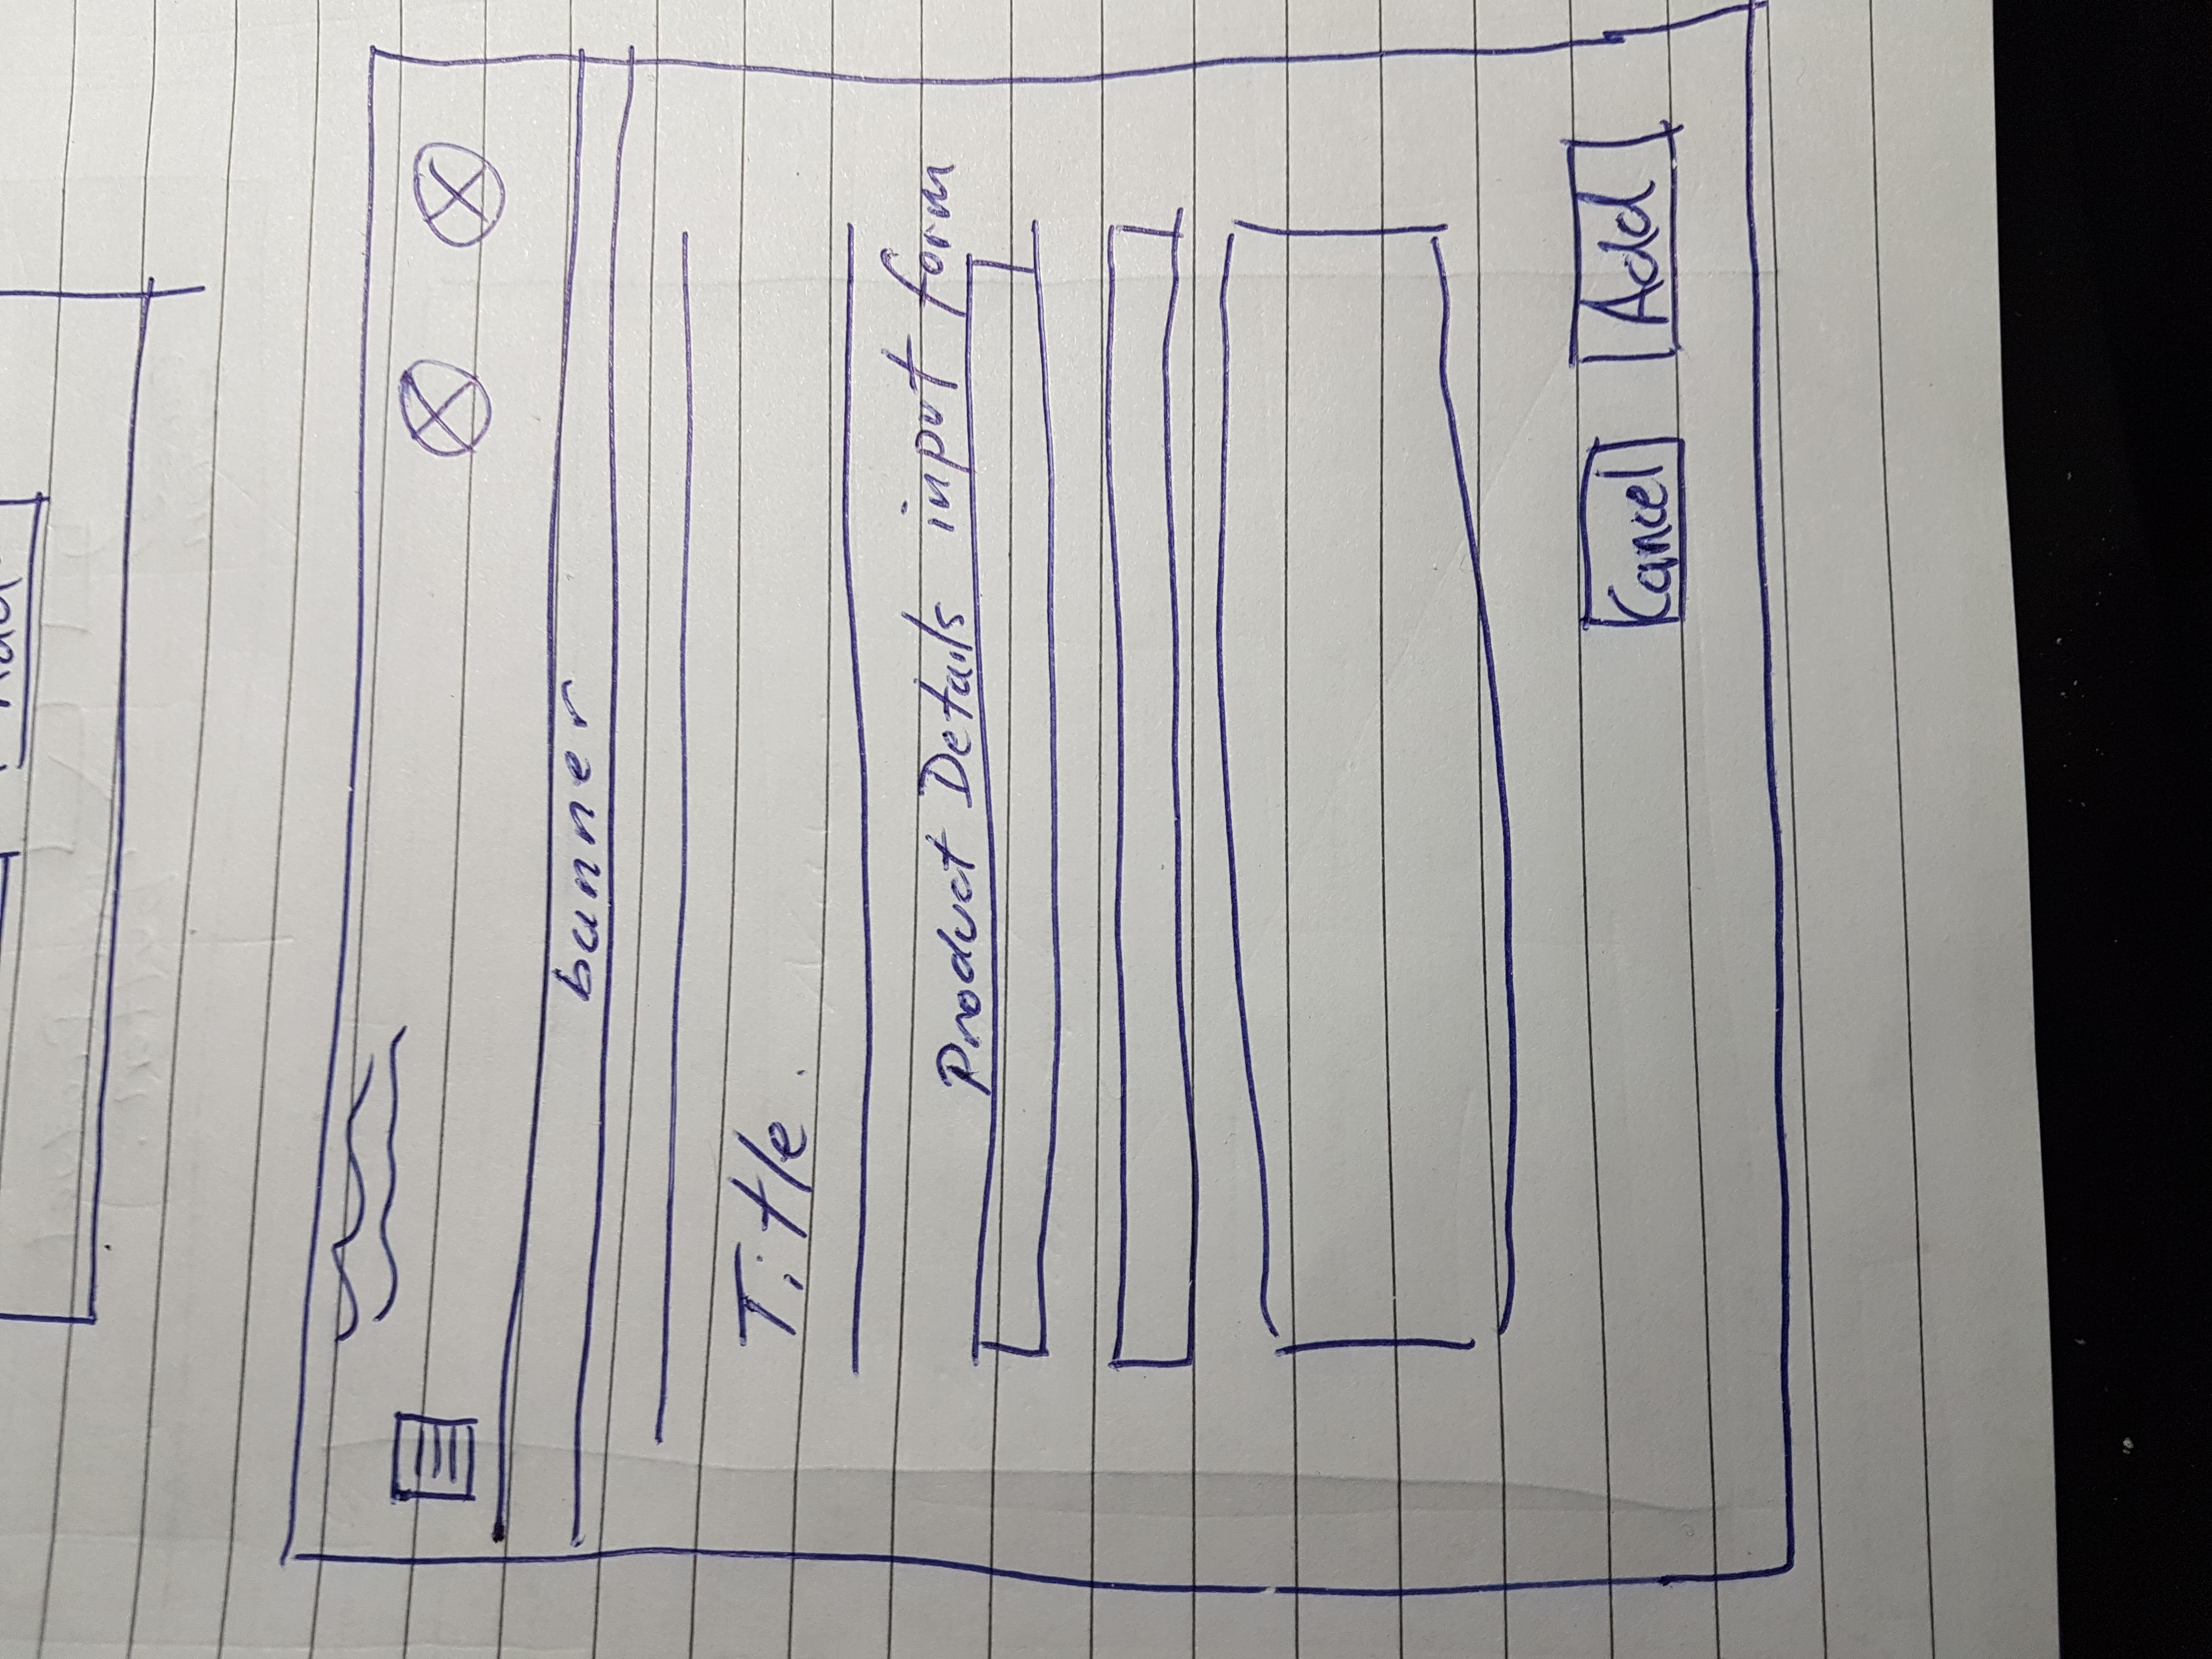 Add
banner
Title.
Product Details input form
Cancel
Add